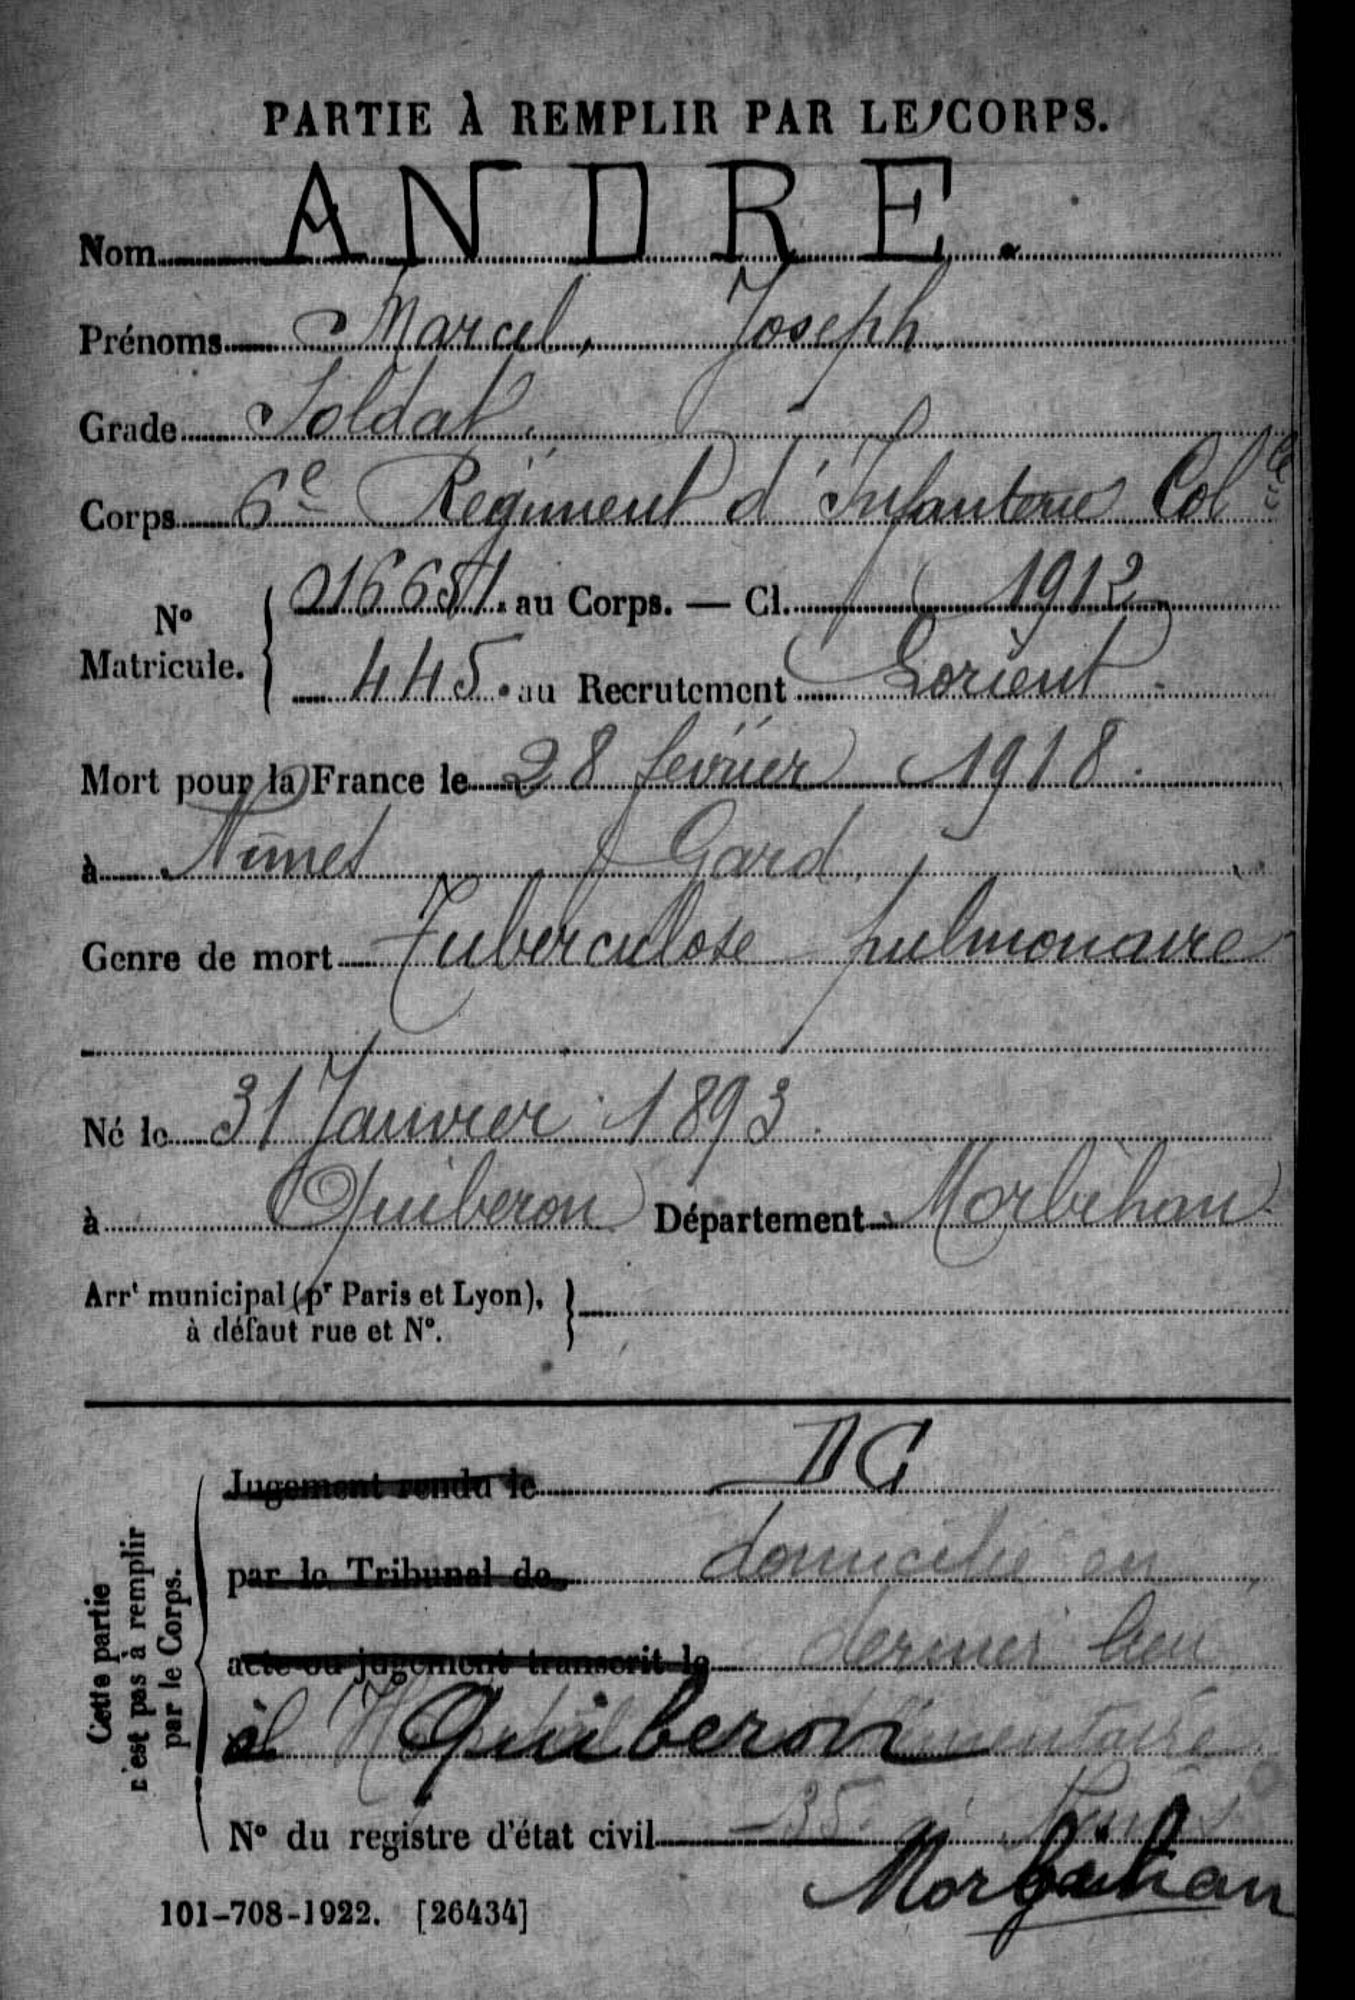 PARTIE À REMPLIR PAR LE CORPS.
Nom ANDRE.
Prénoms Marcel, Joseph
Grade Soldat.
Corps 6e Régiment d'Infanterie Colle
No Matricule. 016651. au Corps. — Cl. 1912
445. au Recrutement Lorient.
Mort pour la France le 28 février 1918.
à Nimes Gard.
Genre de mort Tuberculose pulmonaire
Né le 31 Janvier 1893.
à Quiberon Département Morbihan
Arrt municipal (pr Paris et Lyon),
à défaut rue et No.
Cette partie
n'est pas à remplir
par le Corps.
Jugement rendu le DG
par le Tribunal de domicilié en
acte ou jugement transcrit le dernier lieu
à Quiberon
No du registre d'état civil 35
Morbihan
101-708-1922. [26434]